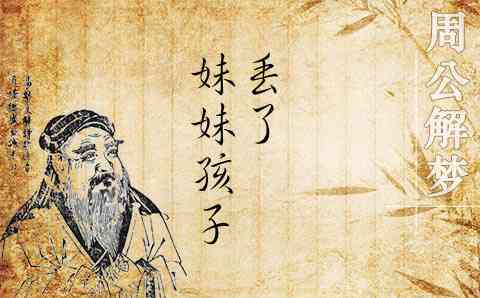 周公解梦
丢了
妹妹孩子